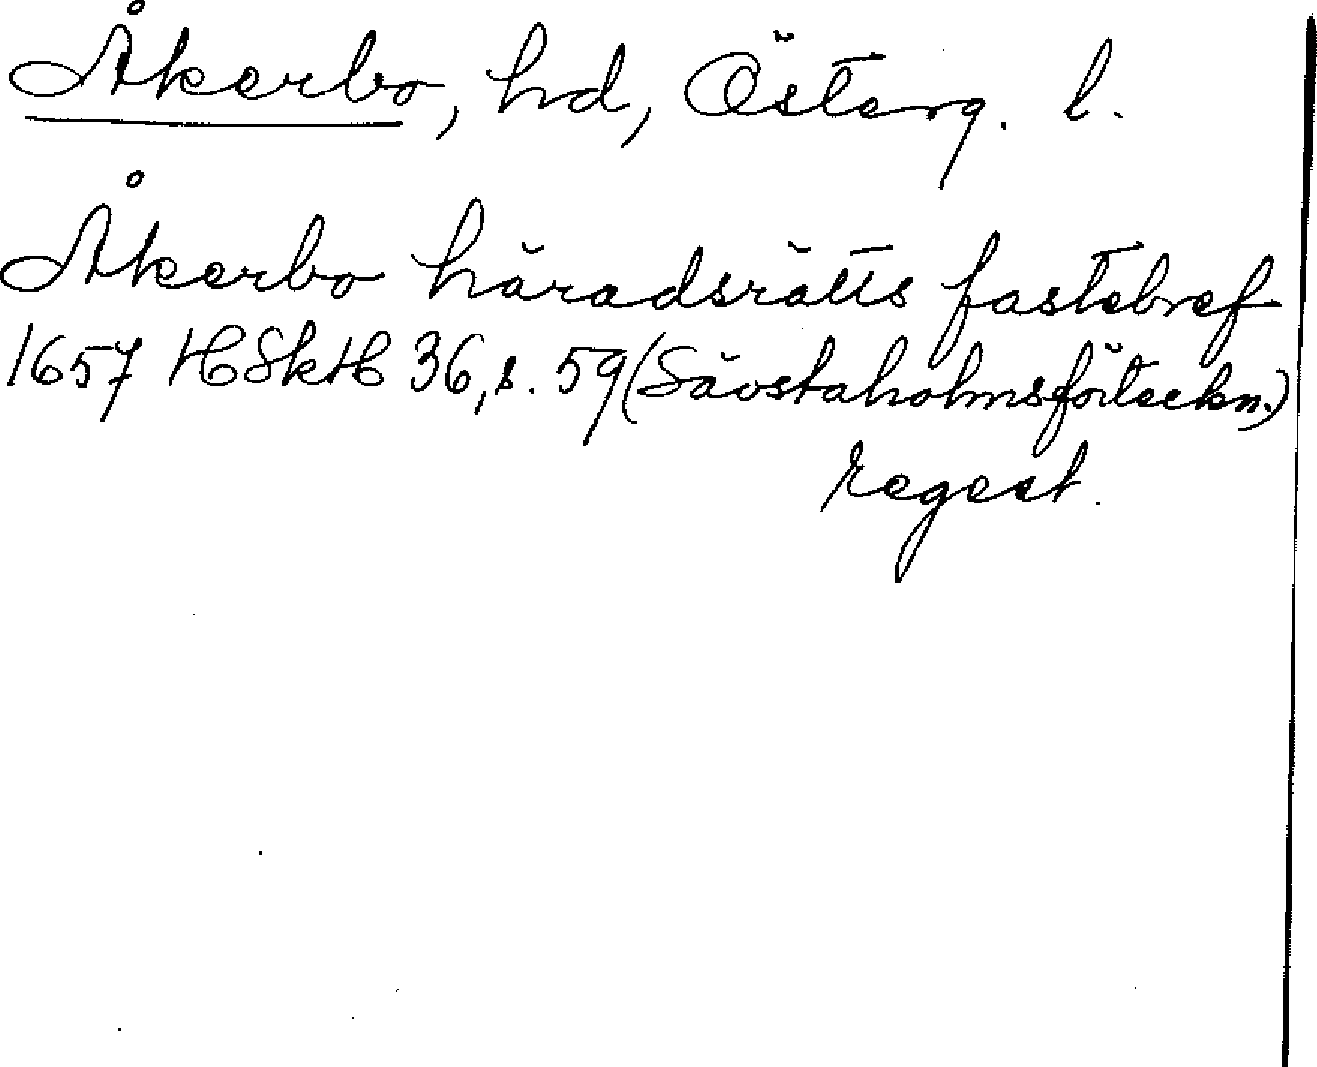 Åkerbo, hd, Österg. l.
Åkerbo häradsrätts fastebref
1657 HSkH 36, s. 59 (Sävstaholmsförteckn.)
regest.